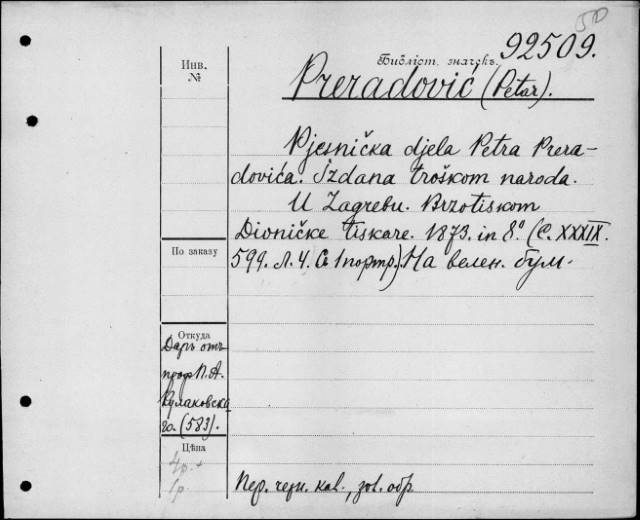 Библіот. значекъ. 92509.
Preradović (Petar).
Инв.
№
Pjesnička djela Petra Prera-
dovića. Izdana troškom naroda.
U Zagrebu. Brzotiskom
Dioničke tiskare. 1873. in 8° (C. XXXIX.
599. Л. Ч. Съ 1 портр.) На велен. бум.
По заказу
Откуда
Даръ отъ
проф. П. А.
Кулаковска
го. (583).
Цѣна
4р.+
1р.
Пер. черн. kal., зол. обр.